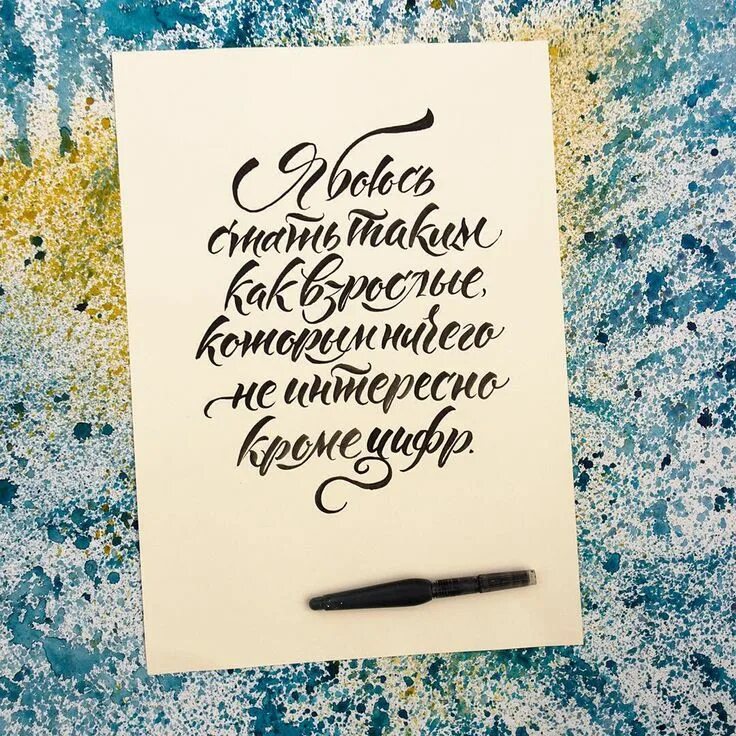 Я боюсь
стать таким
как взрослые,
которым ничего
не интересно
кроме цифр.